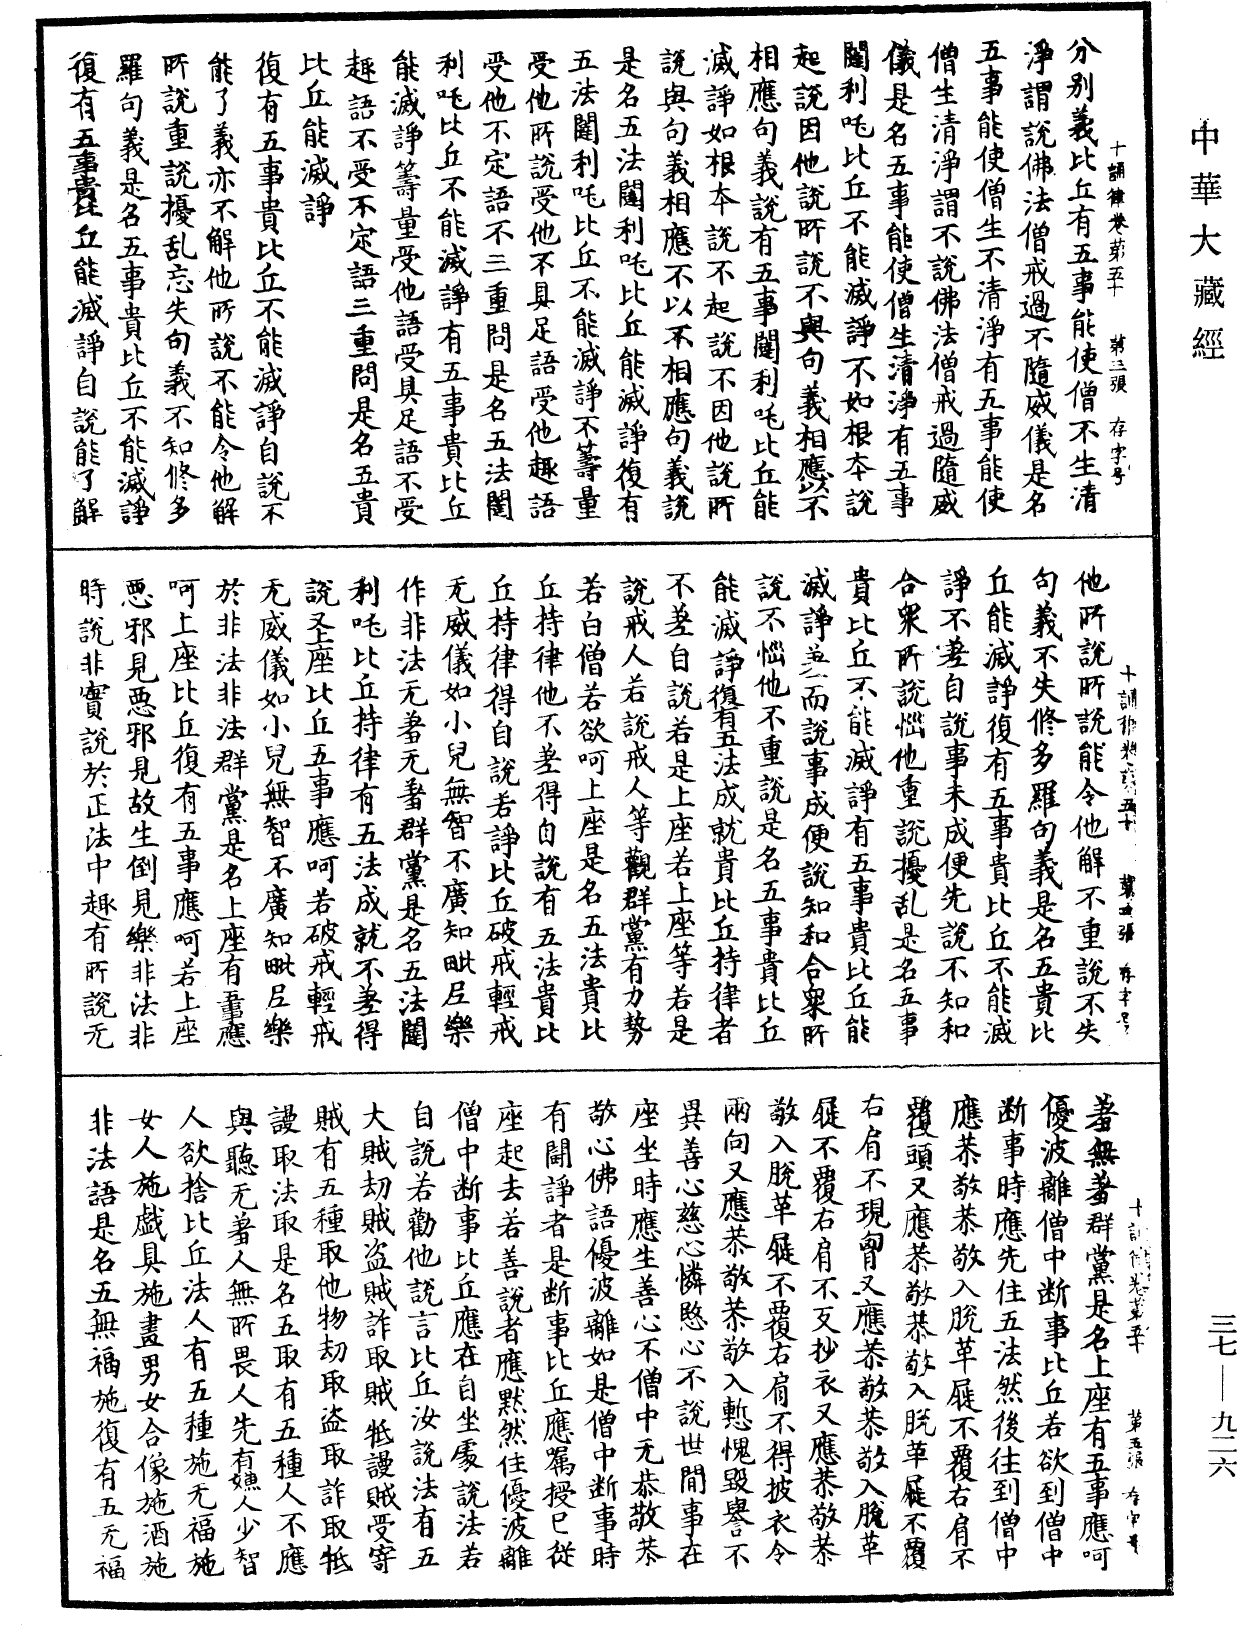 中華大藏經
十誦律卷第五十　第三張　存字号
分别義比丘有五事能使僧不生清
淨謂說佛法僧戒過不隨威儀是名
五事能使僧生不清淨有五事能使
僧生清淨謂不說佛法僧戒過隨威
儀是名五事能使僧生清淨有五事
闥利吒比丘不能滅諍不如根本說
起說因他說所說不與句義相應以不
相應句義說有五事闥利吒比丘能
滅諍如根本說不起說不因他說所
說與句義相應不以不相應句義說
是名五法闥利吒比丘能滅諍復有
五法闥利吒比丘不能滅諍不籌量
受他所說受他不具足語受他趣語
受他不定語不三重問是名五法闥
利吒比丘不能滅諍有五事貴比丘
能滅諍籌量受他語受具足語不受
趣語不受不定語三重問是名五貴
比丘能滅諍
復有五事貴比丘不能滅諍自說不
能了義亦不解他所說不能令他解
所說重說擾乱忘失句義不知修多
羅句義是名五事貴比丘不能滅諍
復有五事貴比丘能滅諍自說能了解
他所說所說能令他解不重說不失
句義不失修多羅句義是名五貴比
丘能滅諍復有五事貴比丘不能滅
諍不差自說事未成便先說不知和
合衆所說惱他重說擾乱是名五事
貴比丘不能滅諍有五事貴比丘能
滅諍差而說事成便說知和合衆所
說不惱他不重說是名五事貴比丘
能滅諍復有五法成就貴比丘持律者
不差自說若是上座若上座等若是
說戒人若說戒人等觀群黨有力勢
若白僧若欲呵上座是名五法貴比
丘持律他不差得自說有五法貴比
丘持律得自說若諍比丘破戒輕戒
无威儀如小兒無智不廣知毗尼樂
作非法无羞无羞群黨是名五法闥
利吒比丘持律有五法成就不差得
說又上座比丘五事應呵若破戒輕戒
无威儀如小兒無智不廣知毗尼樂
於非法非法群黨是名上座有五事應
呵上座比丘復有五事應呵若上座
惡邪見惡邪見故生倒見樂非法非
時說非實說於正法中趣有所說无
十誦律卷第五十　第四張　存字号
羞無羞群黨是名上座有五事應呵
優波離僧中断事比丘若欲到僧中
断事時應先住五法然後往到僧中
應恭敬恭敬入脫革屣不覆右肩不
覆頭又應恭敬恭敬入脫革屣不覆
右肩不現胷又應恭敬恭敬入脫革
屣不覆右肩不反抄衣又應恭敬恭
敬入脫革屣不覆右肩不得披衣令
兩向又應恭敬恭敬入慙愧毀譽不
異善心慈心憐愍心不說世間事在
座坐時應生善心不僧中无恭敬恭
敬心佛語優波離如是僧中断事時
有鬪諍者是断事比丘應囑授已從
座起去若善說者應默然住優波離
僧中断事比丘應在自坐處說法若
自說若勸他說言比丘汝說法有五
大賊劫賊盗賊詐取賊牴謾賊受寄
賊有五種取他物劫取盗取詐取牴
謾取法取是名五取有五種人不應
與聽无羞人無所畏人先有嫌人少智
人欲捨比丘法人有五種施无福施
女人施戲具施畫男女合像施酒施
非法語是名五無福施復有五无福
十誦律卷第五十　第五張　存字号
三七—九二六